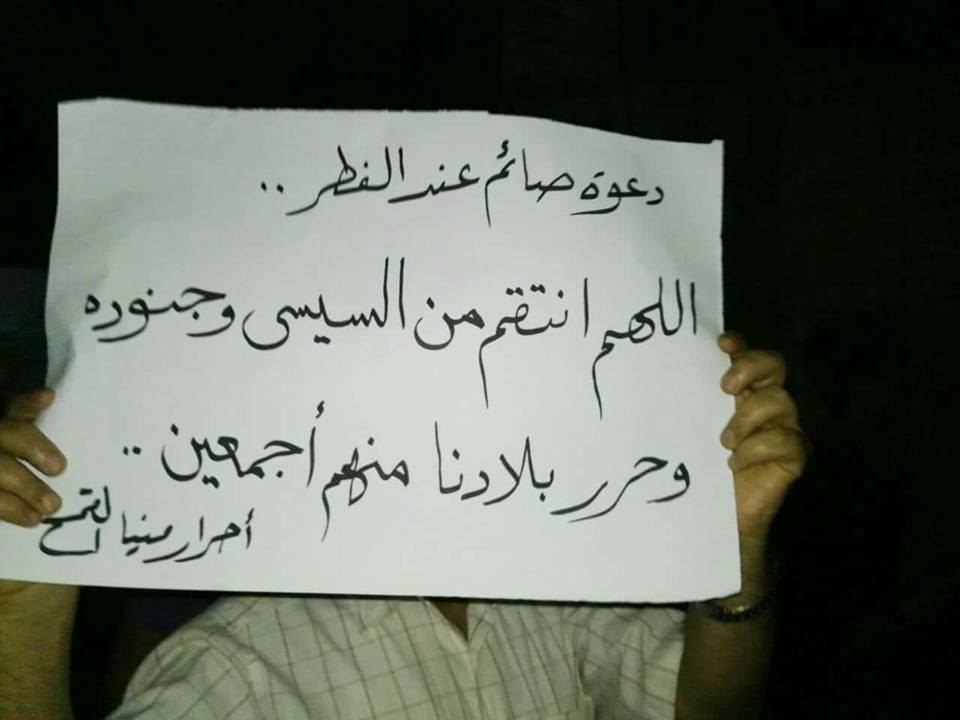 دعوة صائم عند الفطر ..
اللهم انتقم من السيسى وجنوده
وحرر بلادنا منهم أجمعين ..
أحرار منيا القمح